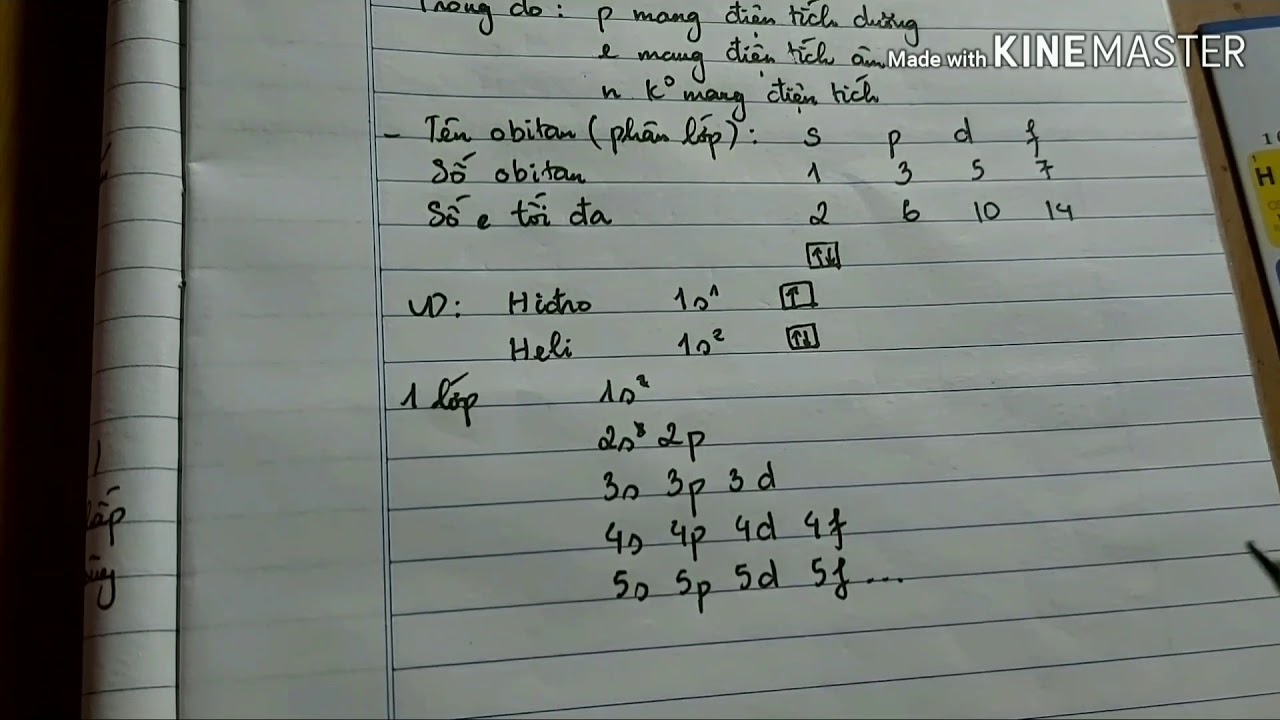 Trong đó: p mang điện tích dương
e mang điện tích âm
Made with KINEMASTER
n k° mang điện tích
- Tên obitan (phân lớp): s p d f
Số obitan 1 3 5 7
Số e tối đa 2 6 10 14
↑↓
VD: Hiđro 1s¹ ↑
Heli 1s² ↑↓
1 lớp 1s²
2s² 2p
3s 3p 3d
4s 4p 4d 4f
5s 5p 5d 5f ...
H